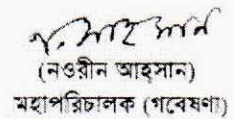 (নওরীন আহসান)
মহাপরিচালক (গবেষণা)